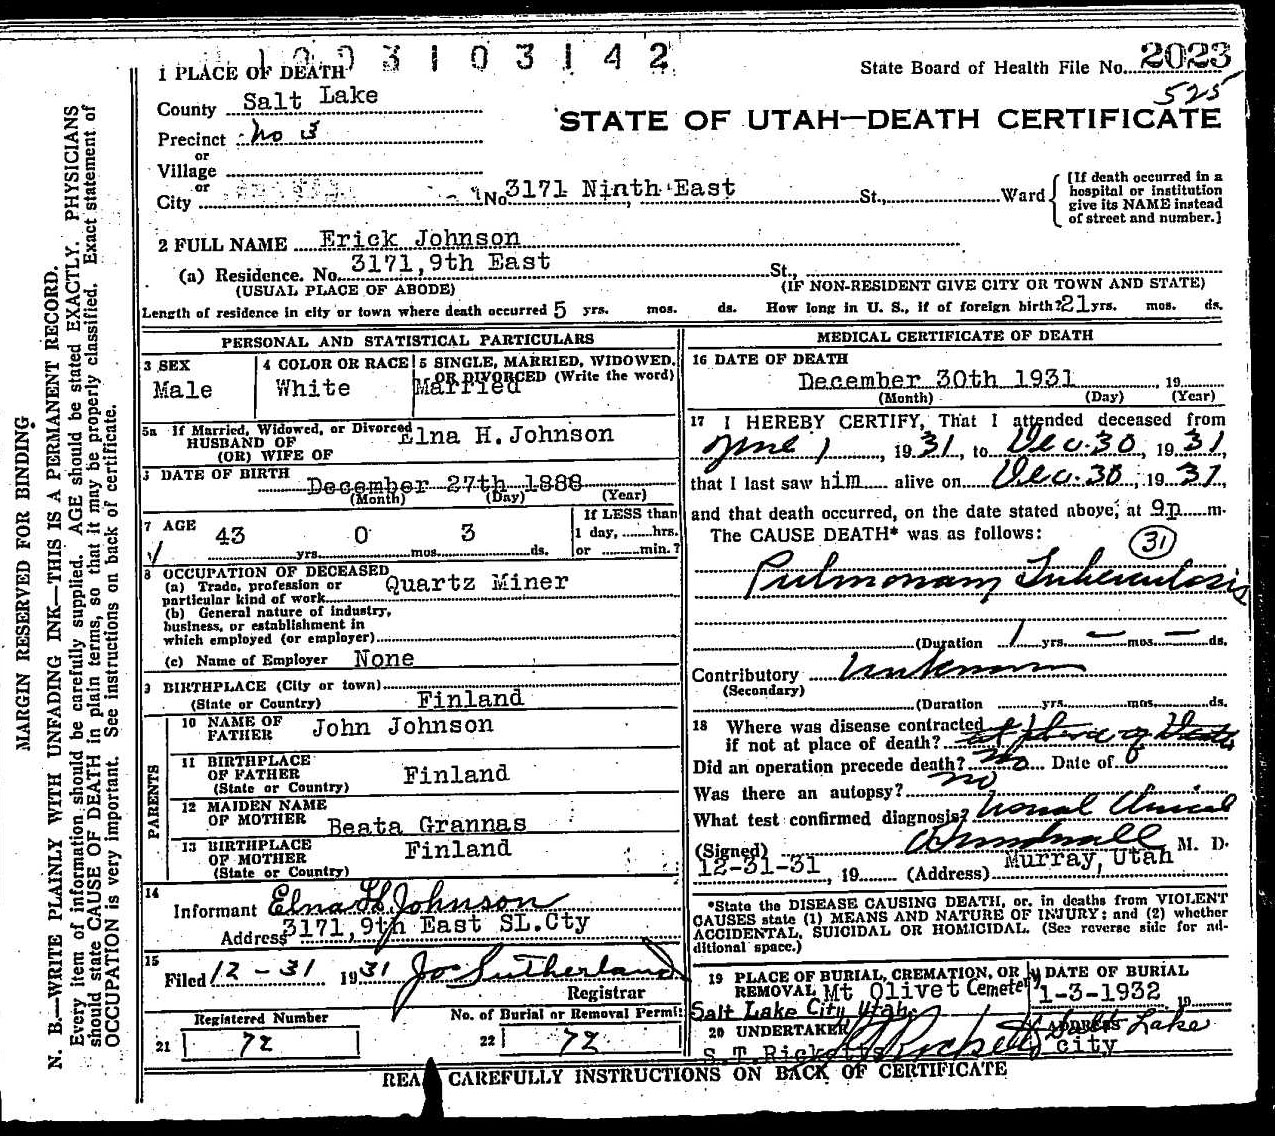 1003103142
State Board of Health File No. 2023
525
1 PLACE OF DEATH
County Salt Lake
STATE OF UTAH—DEATH CERTIFICATE
Precinct No 3
or
Village
or
City No 3171 Ninth East St., Ward
[If death occurred in a
hospital or institution
give its NAME instead
of street and number.]
2 FULL NAME Erick Johnson
(a) Residence. No. 3171,9th East St.,
(USUAL PLACE OF ABODE) (IF NON-RESIDENT GIVE CITY OR TOWN AND STATE)
Length of residence in city or town where death occurred 5 yrs. mos. ds. How long in U. S., if of foreign birth? 21 yrs. mos. ds.
PERSONAL AND STATISTICAL PARTICULARS
3 SEX
Male
4 COLOR OR RACE
White
5 SINGLE, MARRIED, WIDOWED,
OR DIVORCED (Write the word)
Married
5a If Married, Widowed, or Divorced
HUSBAND OF
(OR) WIFE OF
Elna H. Johnson
DATE OF BIRTH
December 27th 1888
(Month) (Day) (Year)
7 AGE
43 yrs. 0 mos. 3 ds.
If LESS than
1 day, hrs.
or min.?
8 OCCUPATION OF DECEASED
(a) Trade, profession or
particular kind of work Quartz Miner
(b) General nature of industry,
business, or establishment in
which employed (or employer)
(c) Name of Employer None
9 BIRTHPLACE (City or town)
(State or Country) Finland
PARENTS
10 NAME OF
FATHER John Johnson
11 BIRTHPLACE
OF FATHER
(State or Country)
Finland
12 MAIDEN NAME
OF MOTHER Beata Grannas
13 BIRTHPLACE
OF MOTHER
(State or Country)
Finland
14
Informant Elna H Johnson
Address 3171,9th East SL.Cty
15
Filed 12-31 1931 Jos Sutherland
Registrar
Registered Number
21 72
No. of Burial or Removal Permit
22 72
MEDICAL CERTIFICATE OF DEATH
16 DATE OF DEATH
December 30th 1931, 19
(Month) (Day) (Year)
17 I HEREBY CERTIFY, That I attended deceased from
June 1, 1931, to Dec. 30, 1931,
that I last saw him alive on Dec. 30, 1931,
and that death occurred, on the date stated above, at 9p m.
The CAUSE DEATH* was as follows:
31
Pulmonary Tuberculosis
(Duration 1 yrs. — mos. — ds.
Contributory Unknown
(Secondary)
(Duration yrs. mos. ds.
18 Where was disease contracted
if not at place of death? at place of Death
Did an operation precede death? no Date of
Was there an autopsy? no
What test confirmed diagnosis? Usual Clinical
(Signed) M. D.
12-31-31, 19 (Address) Murray, Utah
*State the DISEASE CAUSING DEATH, or, in deaths from VIOLENT
CAUSES state (1) MEANS AND NATURE OF INJURY: and (2) whether
ACCIDENTAL, SUICIDAL OR HOMICIDAL. (See reverse side for ad-
ditional space.)
19 PLACE OF BURIAL, CREMATION, OR
REMOVAL Mt Olivet Cemetery
Salt Lake City Utah.
DATE OF BURIAL
1-3-1932 19
20 UNDERTAKER
S.T.Ricketts
ADDRESS
Salt Lake
City
READ CAREFULLY INSTRUCTIONS ON BACK OF CERTIFICATE
MARGIN RESERVED FOR BINDING
N. B.—WRITE PLAINLY WITH UNFADING INK—THIS IS A PERMANENT RECORD.
Every item of information should be carefully supplied. AGE should be stated EXACTLY. PHYSICIANS
should state CAUSE OF DEATH in plain terms, so that it may be properly classified. Exact statement of
OCCUPATION is very important. See instructions on back of certificate.